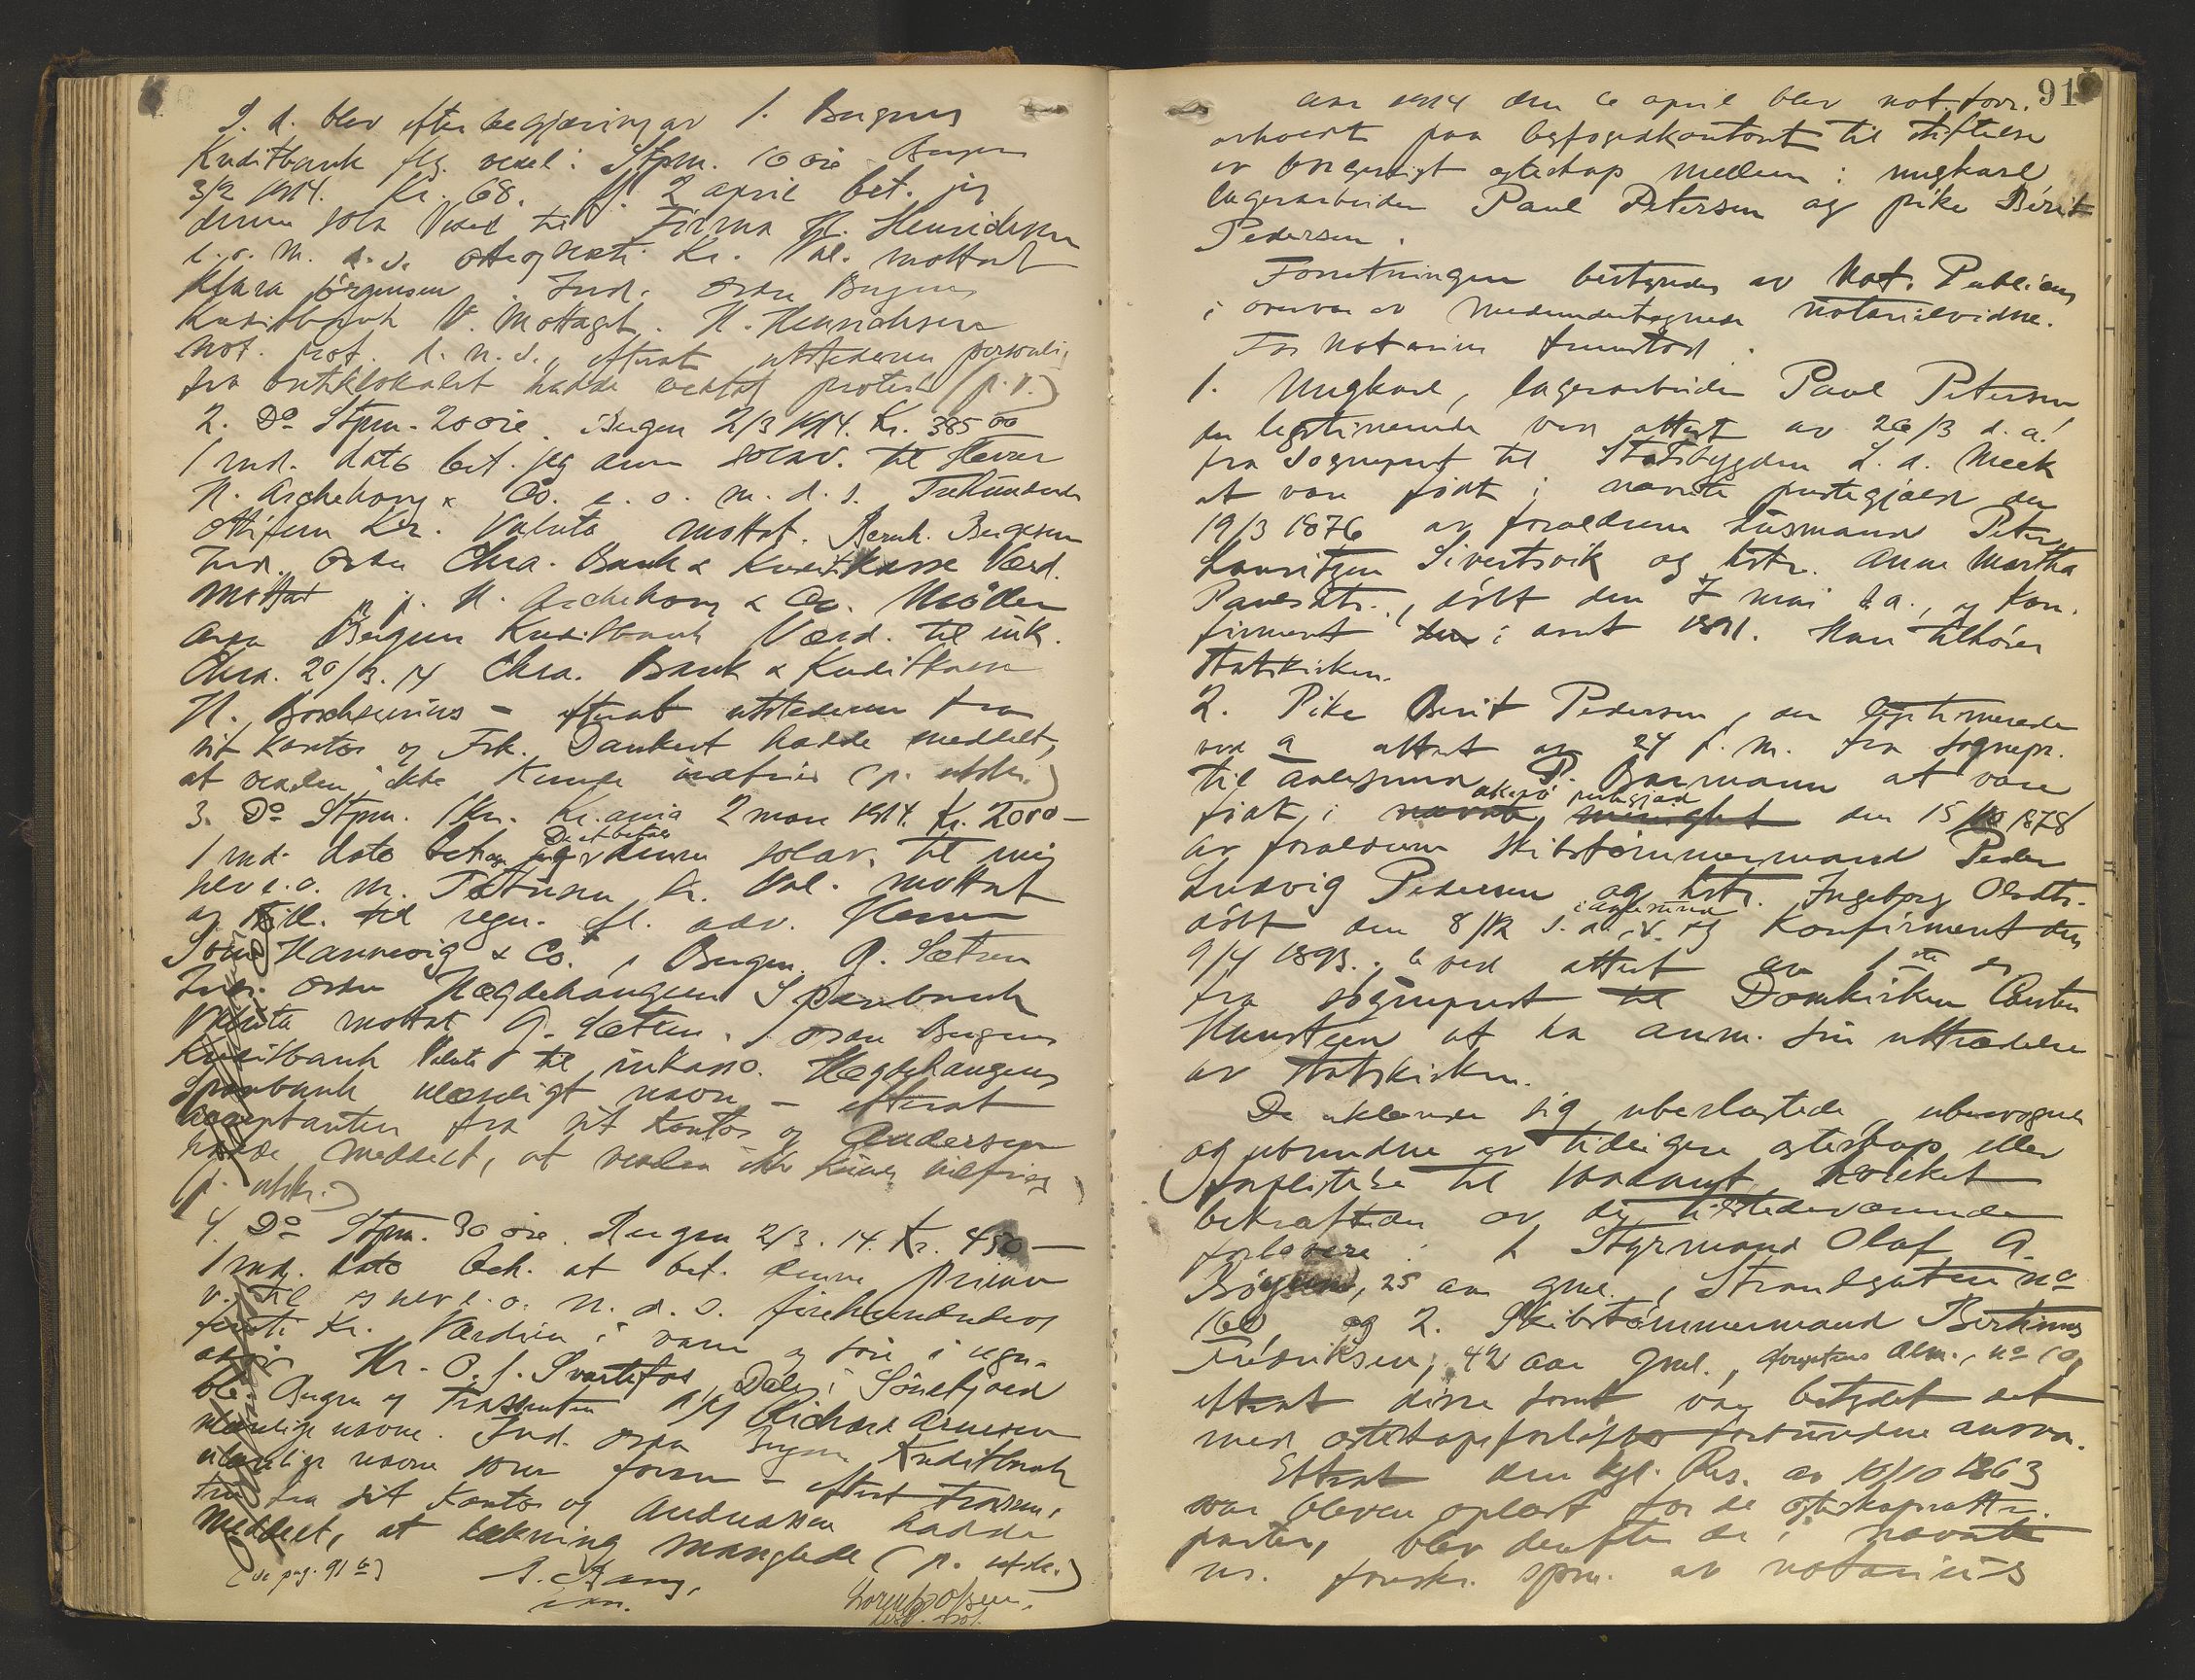 S. d. blev efter begjæring av 1. Bergens
Kreditbank flg. vexel: Stpm. 10 øre Bergen
3/2 1914. Kr. 68. 2 april bet. jeg
denne sola Vexel til Firma H. Henrichsen
e. o. m. d. s. otteogseksti Kr. Val. mottat
Klara Jörgensen. Ind. ordre Bergens
Kreditbank V. Mottaget. H. Henrichsen
not. prot. d. n. s., efterat utstederen personlig
fra butiklokalet hadde vedtat protest (p. v.)
2. Do Stpm. 20 øre. Bergen 2/3 1914. Kr. 385 00
1 md. dato bet. jeg denne solav. til Herrer
H. Aschehoug & Co. e. o. m. d. s. Trehundrede
ottifem Kr. Valuta mottat. Bernh.
Ind. ordre Chra. Bank & Kreditkasse Værd.
mottat p. p. H. Aschehoug & Co. Möller
ordre Bergens Kreditbank Værd. til ink.
Chra. 20/3. 14 Chra. Bank & Kreditkasse
H. - efterat utstederen fra
sit kontor og Frk. Dankert hadde meddelt,
at vexelen ikke kunde indfries (p. utst.)
3. Do Stpm. 1 Kr. Kr.ania 2 mars 1914. Kr. 2000 -
De et betaler
1 md. dato denne solav. til mig
selv e. o. m. Totusen Kr. Val. mottat
og stil. til regn. fl. adv. Herrer
Hannevig & Co., Bergen. G. Sætren
Ind. ordre Hægdehaugens Sparebank
Valuta mottat G. Sætren. ordre Bergens
Kreditbank Valuta til inkasso. Hægdehaugens
Sparebank ulæseligt navn - efterat
acceptanten fra sit kontor og Andersen
hadde meddelt, at vexelen ikke kunde indfries
(p. utst.)
4. Do Stpm. 30 øre. Bergen 2/3. 14. Kr. 450 -
1 md. dato beh. at bet. denne prima
v. til os selv e. o. m. d. s. firehundrede
femti Kr. Værdien i varer og före i regn.
Hr. O. J. Svartefos, Dale i Söndfjord
bet. Bergen og Trassenten A/S Richard Arnesen
ulæselige navne. Ind. ordre Bergens Kreditbank
ulæselige navne som foran - efterat trassen-
ten fra sit kontor og Andreassen hadde
meddelt, at dækning manglede (p. utst.)
(se pag. 91 b)
91
Aar 1914 den 6 april blev not. forr.
avholdt paa byfogedkontoret til stiftelse
av borgerligt egteskap mellem: ungkarl
lagerarbeider Paul Petersen og pike Berit
Pedersen.
Forretningen bestyredes av Not. Publicus
i overvær av medundertegnede notarialvidne.
For Notarius fremstod:
1. Ungkarl, lagerarbeider Paul Petersen,
der legitimerede ved attest av 26/3 d. a.
fra Sogneprest til Statsbygden L. A. Meek
at være födt i nævnte prestegjæld den
19/3 1876 av forældrene husmand Peter
Lauritzen Sivertsvik og hstr. Anne Martha
Paulsdtr., döbt den 7 mai s. a., og kon-
firmert den i aaret 1891. Han tilhörer
statskirken.
2. Pike Berit Pedersen, der legitimerede
ved a attest av 24 f. m. fra sognepr.
til Aalesund P. Barmann at være
prestegjæld
födt i nævnte menighet den 15/10 1878
av forældrene skibstömmermand Peder
Ludvig Pedersen og hstr. Ingeborg Olsdtr.
i Aalesund
döbt den 8/12 s. a. og konfirmert den
9/4 1893., b ved attest av 1ste ds
fra sogneprest til Domkirken Carsten
Hansteen at ha anm. sin uttrædelse
av statskirken.
De erklærede sig ubeslægtede, ubesvogrede
og ubundne av tidligere egteskap eller
forpligtelse til saadant, hvilket
bekræftedes av de tilstedeværende
forlovere: 1. Styrmand Olaf A.
, 25 aar gml., Strandgaten no
160, og 2. Skibstömmermand Bertinus
Fredriksen, 42 aar gml., Alm., no 10,
efterat disse först var betydet det
med egteskapsforlöfter forbundne ansvar.
Efterat den kgl. Res. av 10/10 1863
var bleven oplæst for de egteskapsattr.
parter, blev derefter de i nævnte
res. foreskr. spm. av notarius